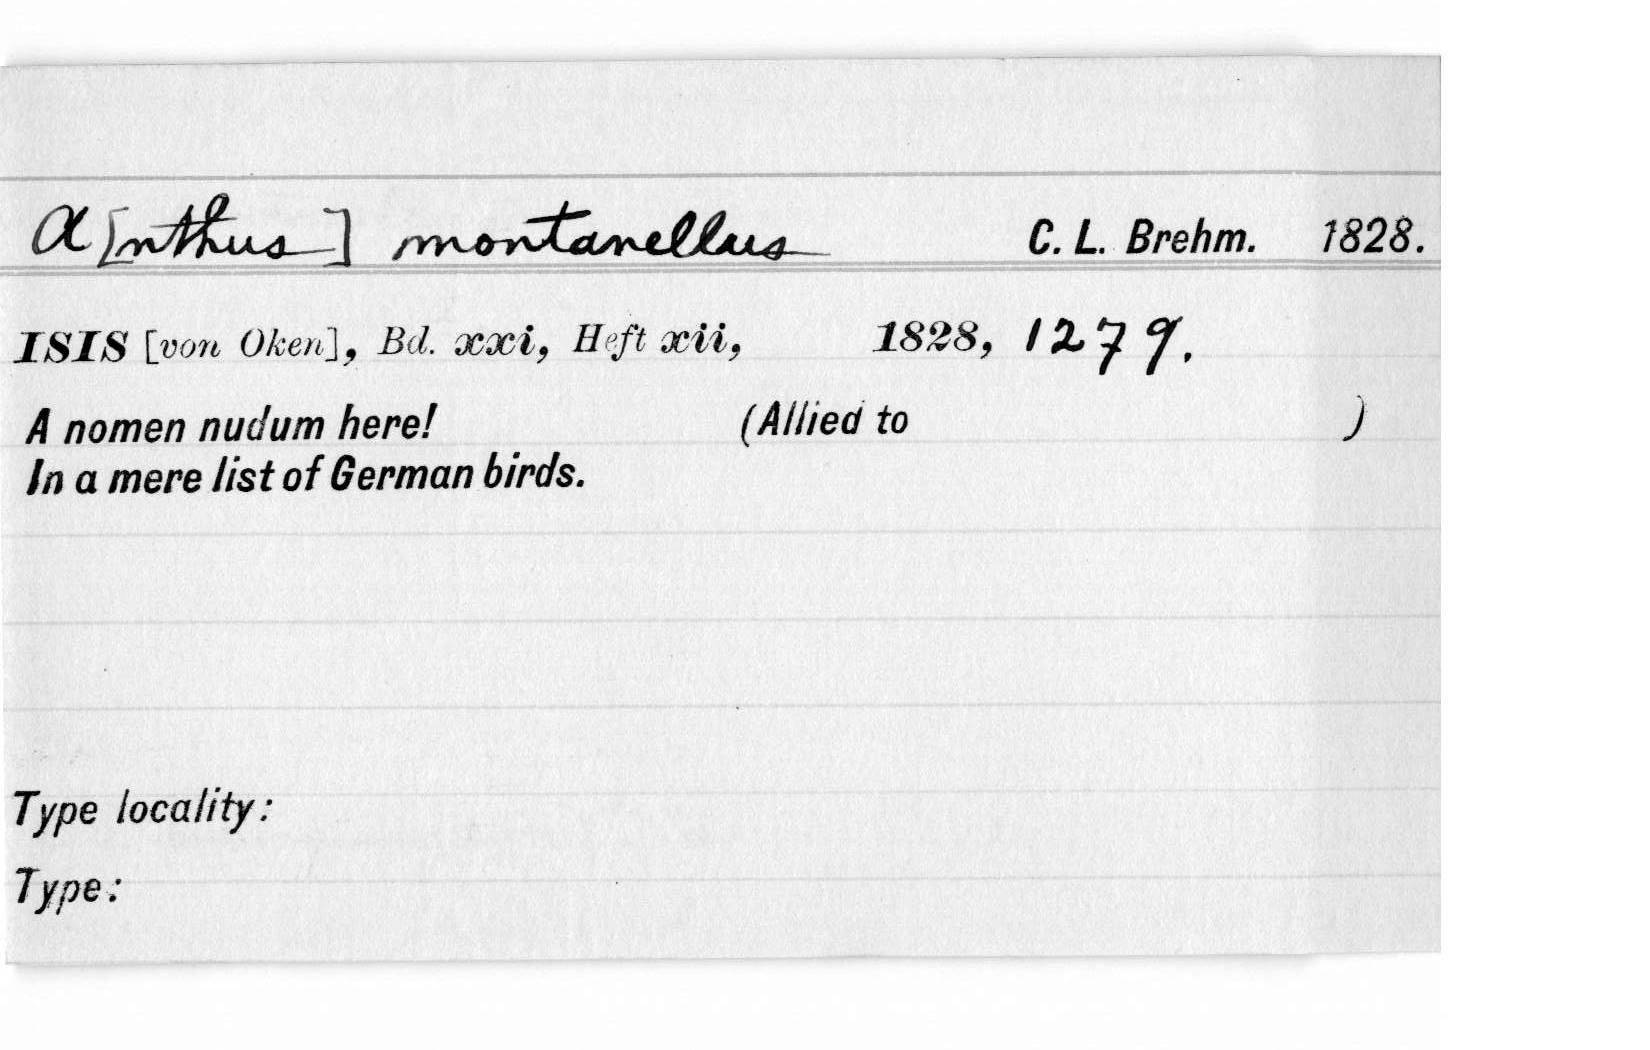 A[nthus] montanellus C. L. Brehm. 1828.
ISIS [von Oken], Bd. xxi, Heft xii, 1828, 1279.
A nomen nudum here! (Allied to )
In a mere list of German birds.
Type locality:
Type: